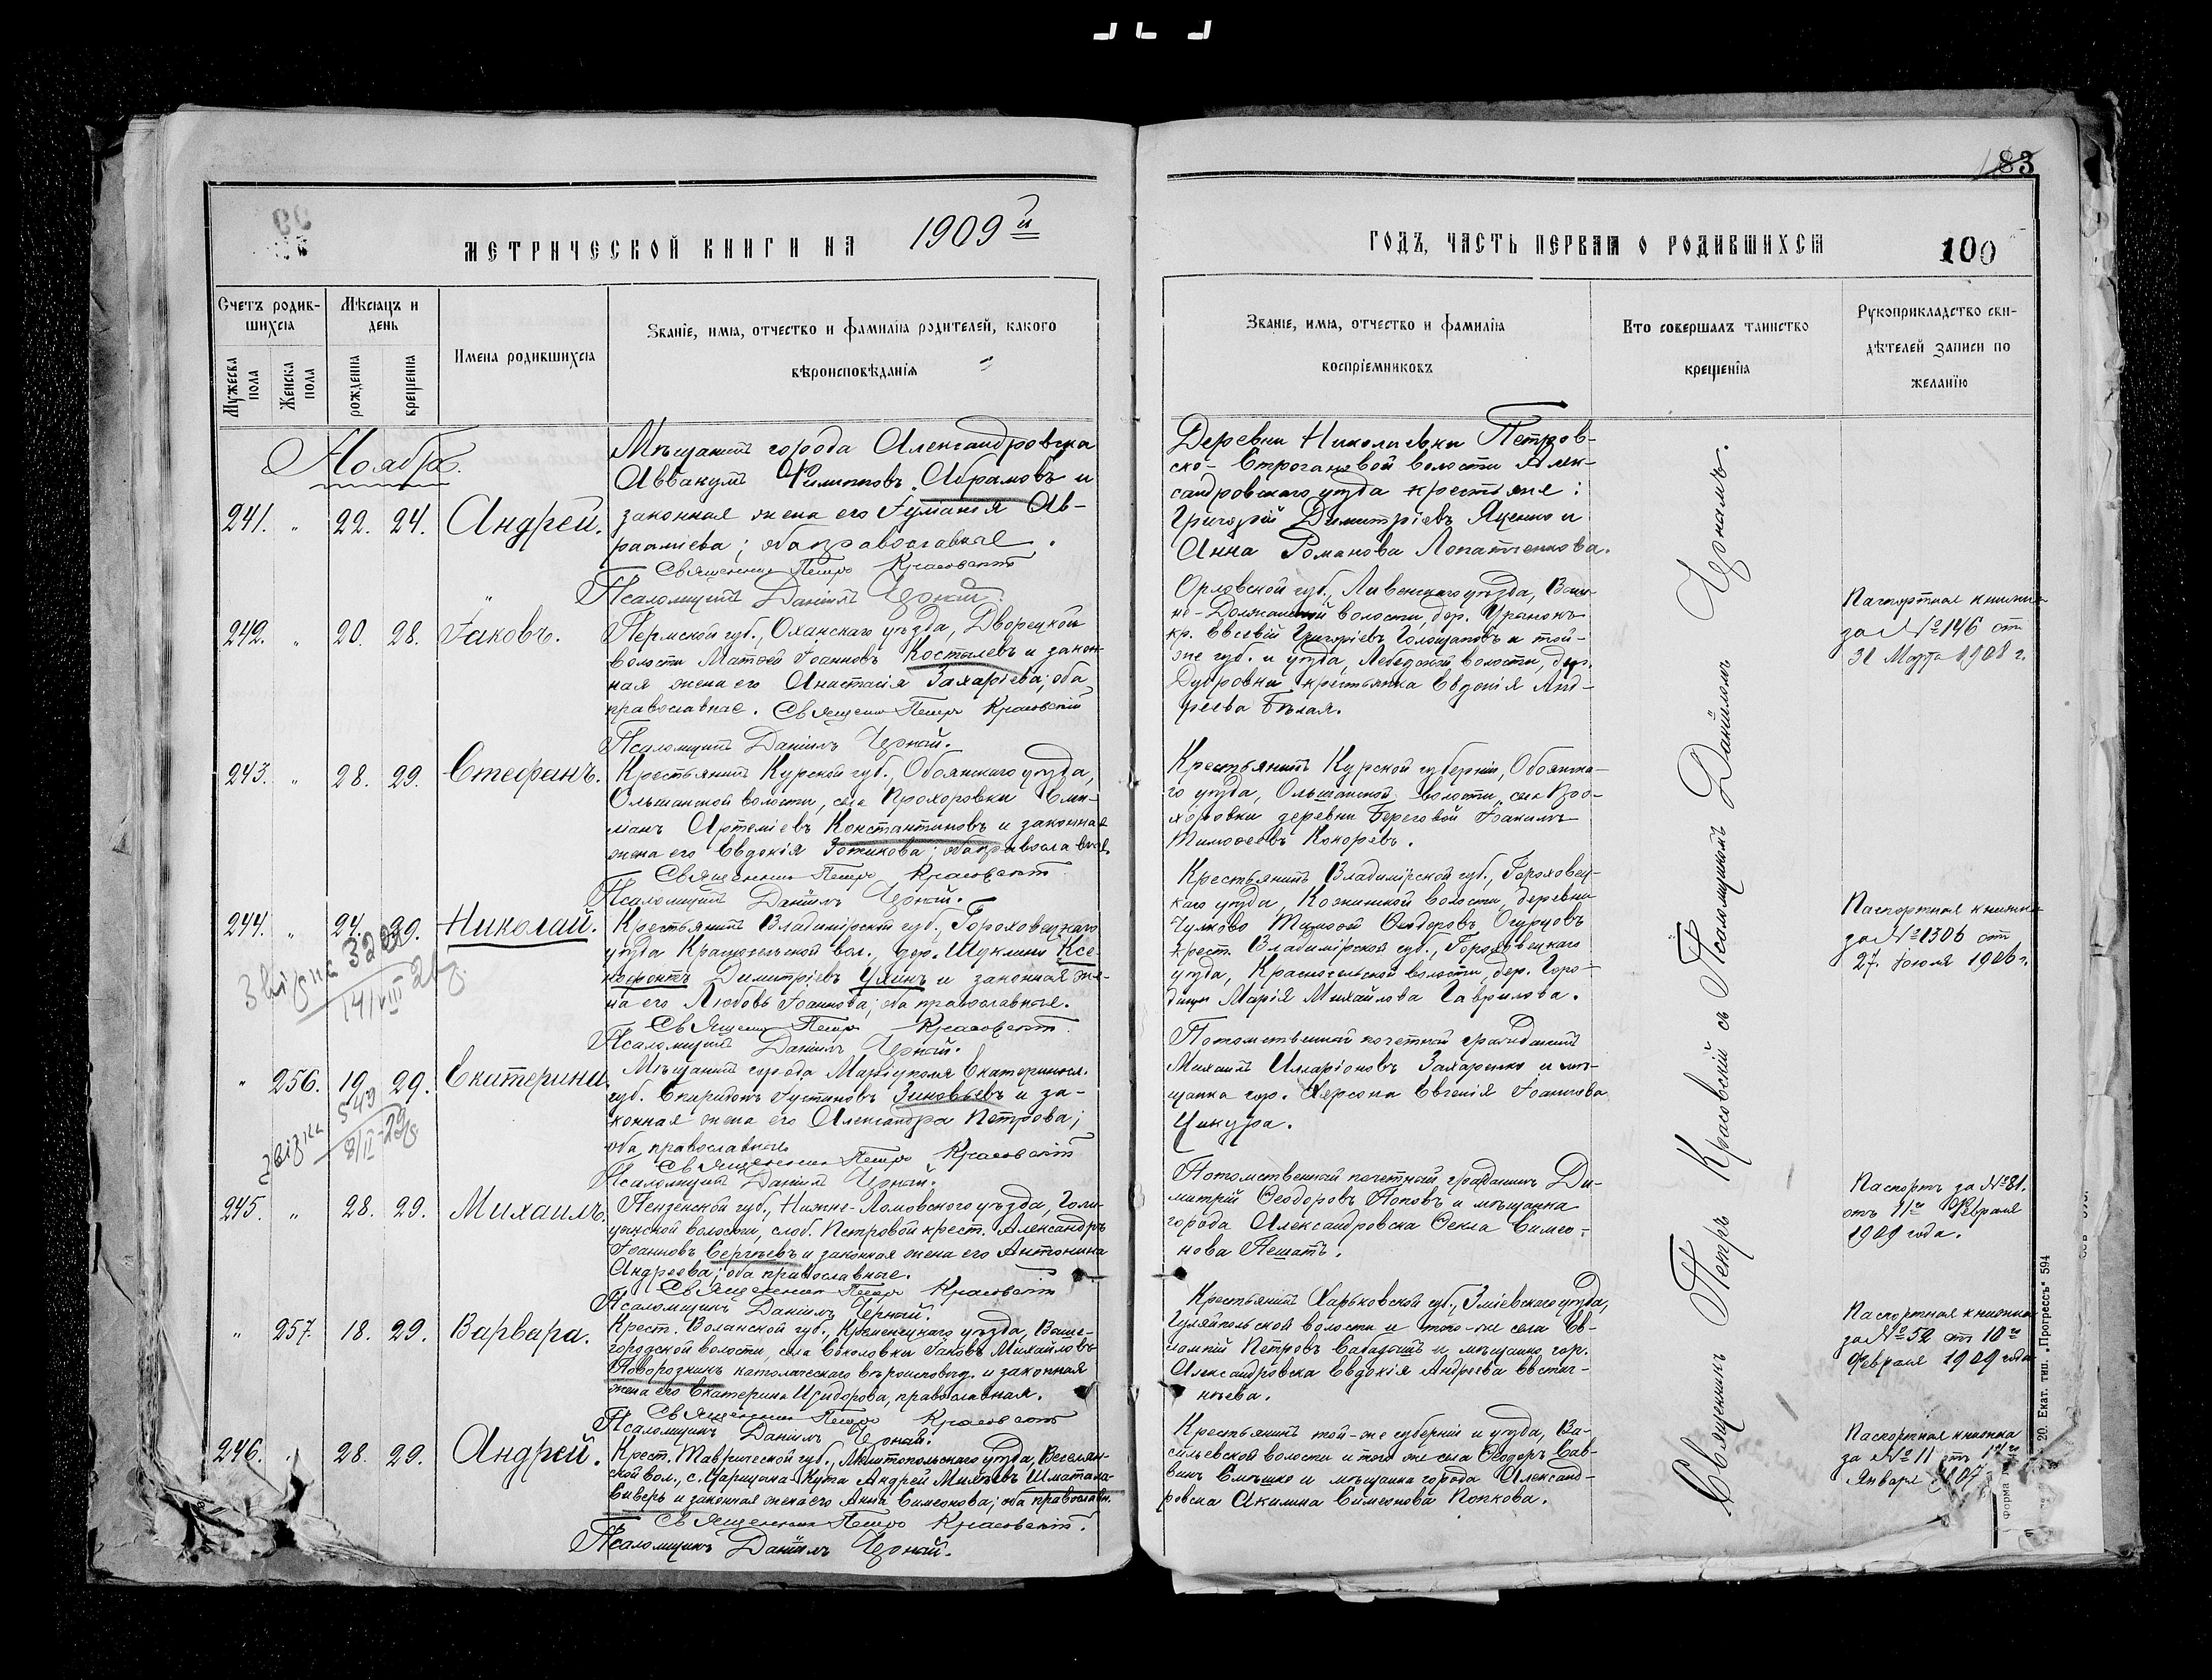 183
МЕТРИЧЕСКОЙ КНИГИ НА 1909й
ГОДЪ, ЧАСТЬ ПЕРВАЯ О РОДИВШИХСЯ
100
Счетъ родив-
шихся
Мѣсяцъ и
день
Имена родившихся
Званіе, имя, отчество и фамилія родителей, какого
вѣроисповѣданія
Мужеска пола
Женска пола
рожденія
крещенія
Званіе, имя, отчество и фамилія
воспріемниковъ
Кто совершалъ таинство
крещенія
Рукоприкладство сви-
дѣтелей записи по
желанію
Ноябрь.
241. " 22. 24. Андрей.
Мѣщанинъ города Александровска
Аввакумъ Филипповъ Абрамовъ и
законная жена его Іуліанія Ав-
рааміева; оба православные.
Священникъ Петръ Красовскій
Псаломщикъ Даніилъ Чорный.
Деревни Николаевки Петров-
ско-Строгановой волости Алек-
сандровскаго уѣзда крестьяне:
Григорій Димитріевъ Яценко и
Анна Романова Лопатченкова.
242. " 20. 28. Іаковъ.
Пермской губ., Оханскаго уѣзда, Дворецкой
волости Матѳей Іоанновъ Костылевъ и закон-
ная жена его Анастасія Захаріева; оба
православные. Священникъ Петръ Красовскій
Псаломщикъ Даніилъ Чорный.
Орловской губ., Ливенскаго уѣзда,
волости, дер.
кр. Евсевій Григорьевъ Голощаповъ и той-
же губ. и уѣзда, волости, дер.
Дубровки крестьянка Евдокія Анд-
реева Бѣлая.
Паспортная книжка
за № 146 отъ
31 Марта 1908 г.
243. " 28. 29. Стефанъ.
Крестьянинъ Курской губ., Обоянскаго уѣзда,
Ольшанской волости, села Прохоровки Еми-
ліанъ Артеміевъ Константиновъ и законная
жена его Евдокія Фотикова; оба православные.
Священникъ Петръ Красовскій
Псаломщикъ Даніилъ Чорный.
Крестьянинъ Курской губерніи, Обоянска-
го уѣзда, Ольшанской волости, села Про-
хоровки деревни Береговой Іоакимъ
Тимоѳеевъ Кокоревъ.
244. " 24. 29. Николай.
Крестьянинъ Владимірской губ., Гороховецкаго
уѣзда Красносельской вол., дер. Шуклина Ксе-
нофонтъ Димитріевъ Ухинъ и законная же-
на его Любовь Іоаннова; оба православные.
Священникъ Петръ Красовскій
Псаломщикъ Даніилъ Чорный.
Крестьянинъ Владимірской губ., Гороховец-
каго уѣзда, Кожинской волости, деревни
Чулково Тимоѳей Ѳеодоровъ Огурцовъ
крест. Владимірской губ., Гороховецкаго
уѣзда, Красносельской волости, дер. Горо-
дищи Марія Михайлова Гаврилова.
Паспортная книжка
за № 1306 отъ
27 Іюля 1906 г.
14/VIII
" 256. 19. 29. Екатерина.
Мѣщанинъ города Маріуполя Екатеринosл.
губ. Спиридонъ Іустиновъ Зиновьевъ и за-
конная жена его Александра Петрова;
оба православные
Священникъ Петръ Красовскій
Псаломщикъ Даніилъ Чорный.
Потомственный почетный гражданинъ
Михаилъ Иларіоновъ Захаренко и мѣ-
щанка гор. Херсона Евгенія Іоаннова
Цинура.
549
245. " 28. 29. Михаилъ.
Пензенской губ., Нижне-Ломовскаго уѣзда, Голи-
цынской волости, слоб. Петровой крест. Александръ
Іоанновъ Сергѣевъ и законная жена его Антонина
Андреева; оба православные.
Священникъ Петръ Красовскій
Псаломщикъ Даніилъ Чорный.
Потомственный почетный гражданинъ Ди-
митрій Ѳеодоровъ Поповъ и мѣщанка
города Александровска Ѳекла Симео-
нова Пешатъ.
Паспортъ за № 81.
отъ 11го Февраля
1909 года.
" 257. 18. 29. Варвара.
Крест. Волынской губ., Кременецкаго уѣзда, Выше-
городской волости, села Соколовки Іаковъ Михайловъ
католическаго вѣроисповѣд. и законная
жена его Екатерина Исидорова, православная.
Священникъ Петръ Красовскій
Псаломщикъ Даніилъ Чорный.
Крестьянинъ Харьковской губ., Зміевскаго уѣзда,
волости и того-же села Ев-
Петровъ и мѣщанка гор.
Александровска Евдокія Андреева Евстиг-
нѣева.
Паспортная книжка
за № 52 отъ 10го
Февраля 1909 года
246. " 28. 29. Андрей.
Крест. Таврической губ., Мелитопольскаго уѣзда, Веселян-
ской вол., с. Царицына-Кута Андрей
Сиверъ и законная жена его Анна Симеонова; оба православн.
Священникъ Петръ Красовскій.
Псаломщикъ Даніилъ Чорный.
Крестьянинъ той-же губерніи и уѣзда, Ва-
сильевской волости и того же села Ѳеодоръ Сав-
винъ и мѣщанка города Александ-
ровска Акилина Симеонова Попкова.
Паспортная книжка
за № 11 отъ
Января 1907
Священникъ Петръ Красовскій съ Псаломщикомъ Даніиломъ Чорнымъ.
20. Екат. тип. „Прогрессъ“ 594
Форма